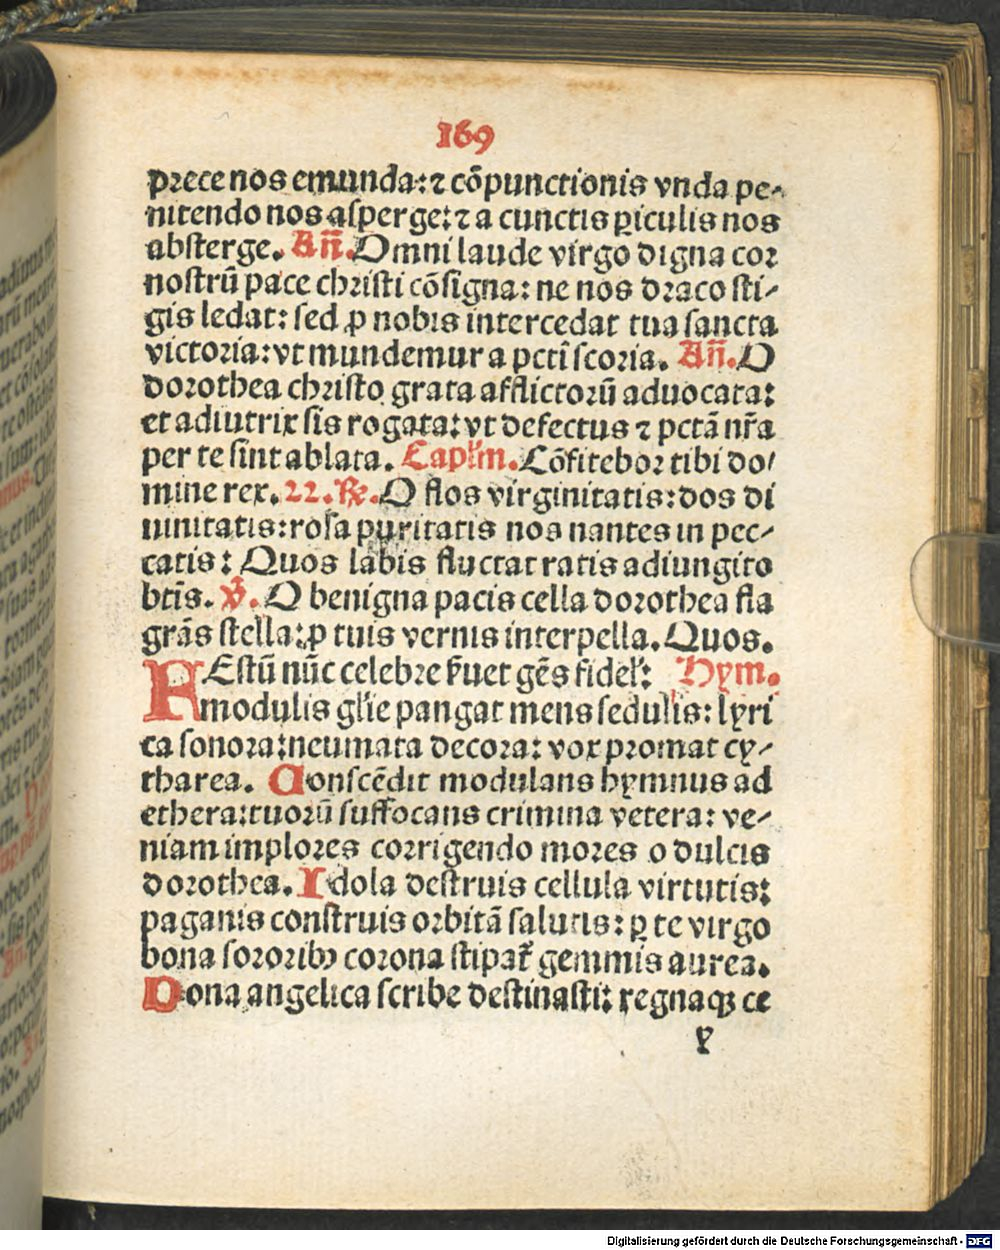 169
prece nos emunda: ⁊ cōpunctionis vnda pe-
nitendo nos aſperge: ⁊ a cunctis ꝑiculis nos
abſterge. Añ. Omni laude virgo digna cor
noſtrū pace chriſti cōſigna: ne nos draco ſti-
gis ledat: ſed ꝓ nobis intercedat tua ſancta
victoria: vt mundemur a pctī ſcoria. Añ. O
dorothea chriſto grata afflictorū aduocata:
et adiutrix ſis rogata: vt defectus ⁊ pctā nr̄a
per te ſint ablata. Capłm. Cōfitebor tibi do/
mine rex. 22. ℟. O flos virginitatis: dos di
uinitatis: roſa puritatis nos nantes in pec-
catis: Quos labis fluctat ratis adiungito
btīs. ℣. O benigna pacis cella dorothea fla
grās ſtella: ꝓ tuis vernis interpella. Quos.
FEſtū nūc celebre p̄uet gēs fidel': Hym.
modulis gl'ie pangat mens ſedulis: lyri
ca ſonora: neumata decora: vox promat cy-
tharea. Conſcēdit modulans hymnus ad
ethera: tuorū ſuffocans crimina vetera: ve-
niam implores corrigendo mores o dulcis
dorothea. Idola deſtruis cellula virtutis:
paganis conſtruis orbitā ſalutis: ꝑ te virgo
bona ſororibꝰ corona ſtipat᷑ gemmis aurea.
Dona angelica ſcribe deſtinaſti: regnaqꝫ ce
y
Digitalisierung gefördert durch die Deutsche Forschungsgemeinschaft - DFG